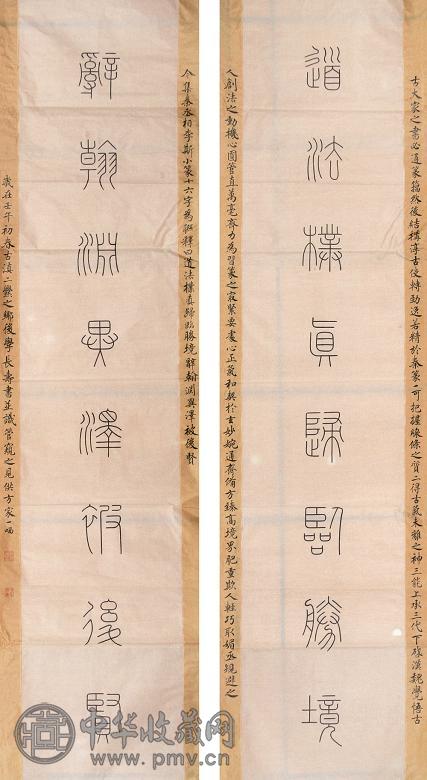 古大家之書必通篆籀然後結構淳古使轉勁逸若精於秦篆一可把握線條之質二得古氣未離之神三能上承三代下漢魏覺悟古
道法樸真歸臨勝境
人創法之動機心圓管直萬毫齊力為習篆之最緊要處心正氣和契於玄妙婉通齊備方臻高境界肥重欺人輕巧取媚丞規避之
今集秦丞相李斯小篆十六字為聯釋曰道法樸真歸臨勝境辭翰淵奧澤被後賢
辭翰淵奧澤被後賢
歲在壬午初春古滇二爨之鄉後學長壽書並識管窺之見供方家一哂
中华收藏网
www.pmv.cn
中华收藏网
www.pmv.cn